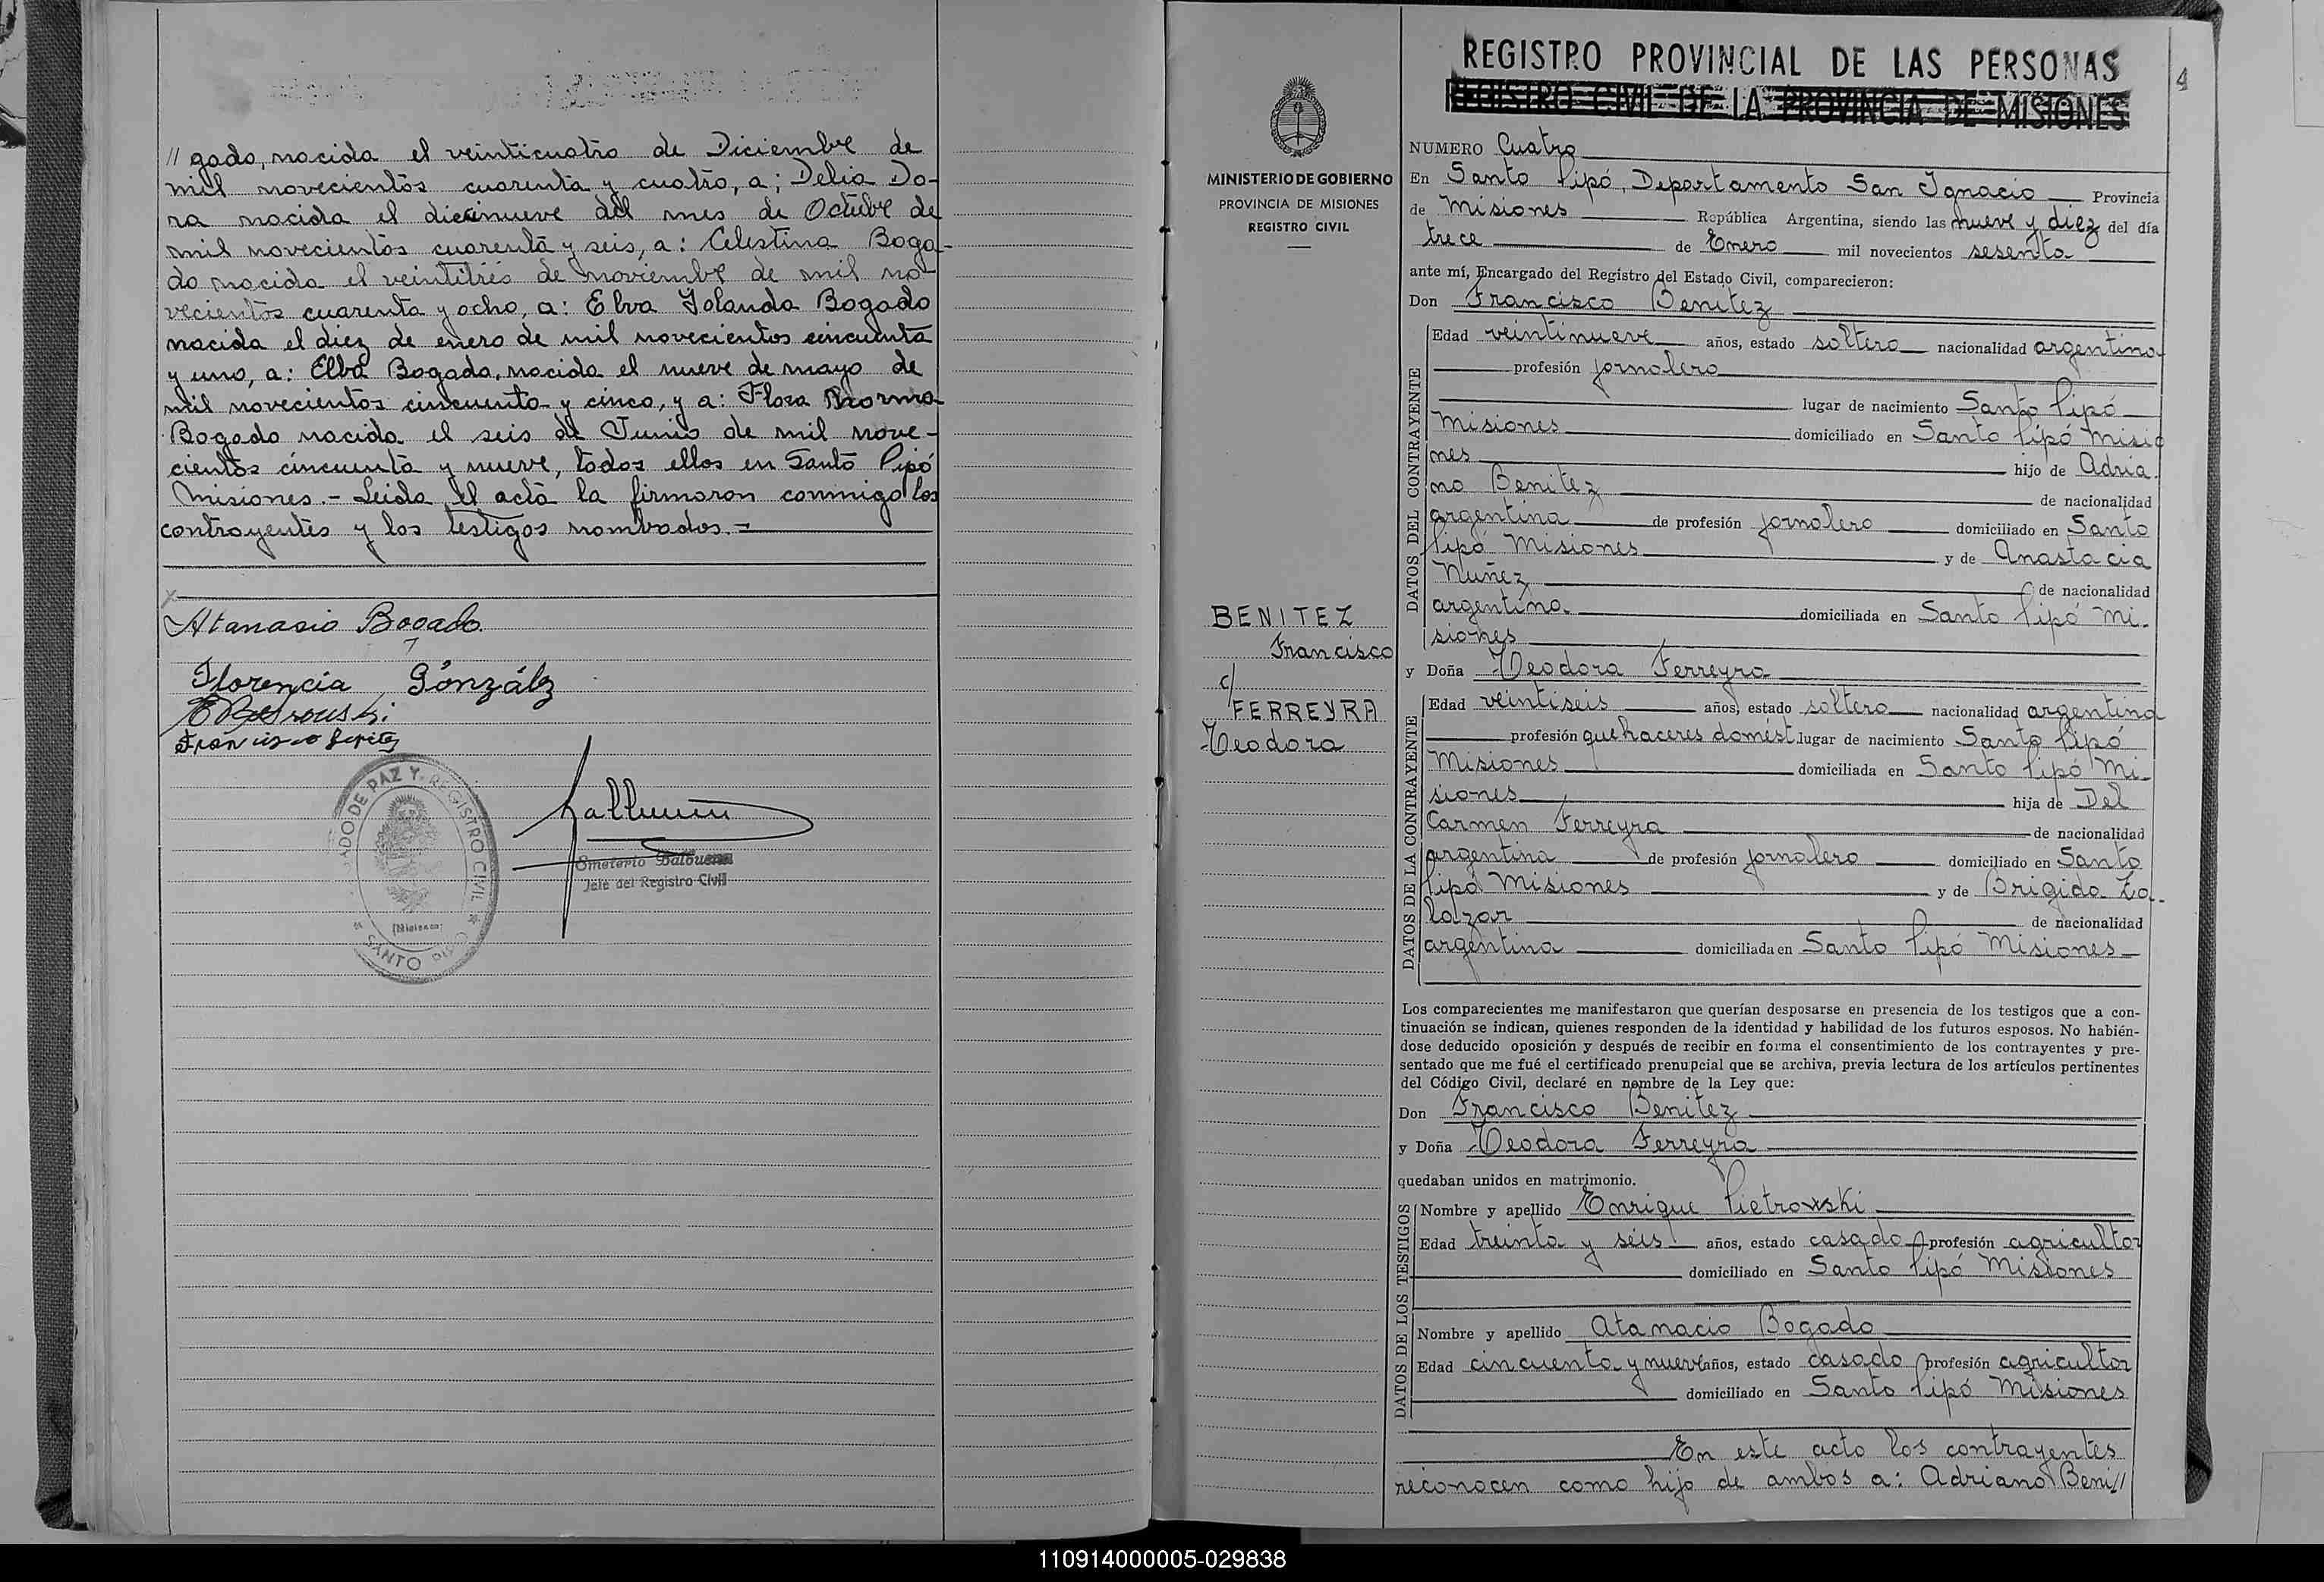 // gado, nacida el veinticuatro de Diciembre de
mil novecientos cuarenta y cuatro, a; Delia Do-
ra nacida el diecinueve del mes de Octubre de
mil novecientos cuarenta y seis, a: Celestina Boga-
do nacida el veintitrés de noviembre de mil no-
vecientos cuarenta y ocho, a: Elva Yolanda Bogado
nacida el diez de enero de mil novecientos cincuenta
y uno, a: Elba Bogado, nacida el nueve de mayo de
mil novecientos cincuenta y cinco, y a: Flora Norma
Bogado nacida el seis de Junio de mil nove-
cientos cincuenta y nueve, todos ellos en Santo Pipó
Misiones.- Leida el acta la firmaron conmigo los
contrayentes y los testigos nombrados.=
Atanasio Bogado
Florencia Gónzález
Francisco Benitez
JUZGADO DE PAZ Y REGISTRO CIVIL
(Misiones)
* SANTO PIPO *
Emeterio Balbuena
Jefe del Registro Civil
REGISTRO PROVINCIAL DE LAS PERSONAS
REGISTRO CIVIL DE LA PROVINCIA DE MISIONES
4
MINISTERIO DE GOBIERNO
PROVINCIA DE MISIONES
REGISTRO CIVIL
BENITEZ
Francisco
c/
FERREYRA
Teodora
NUMERO Cuatro
En Santo Pipó, Departamento San Ignacio Provincia
de Misiones República Argentina, siendo las nueve y diez del día
trece de Enero mil novecientos sesenta
ante mí, Encargado del Registro del Estado Civil, comparecieron:
Don Francisco Benitez
DATOS DEL CONTRAYENTE
Edad veintinueve años, estado soltero nacionalidad argentina
profesión jornalero
lugar de nacimiento Santo Pipó
Misiones domiciliado en Santo Pipó Misio
nes hijo de Adria-
no Benitez de nacionalidad
argentina de profesión jornalero domiciliado en Santo
Pipó Misiones y de Anastacia
Nuñez de nacionalidad
argentina domiciliada en Santo Pipó Mi-
siones
y Doña Teodora Ferreyra
DATOS DE LA CONTRAYENTE
Edad veintiseis años, estado soltera nacionalidad argentina
profesión quehaceres domést. lugar de nacimiento Santo Pipó
Misiones domiciliada en Santo Pipó Mi-
siones hija de Del
Carmen Ferreyra de nacionalidad
argentina de profesión jornalero domiciliado en Santo
Pipó Misiones y de Brigida Za-
lazar de nacionalidad
argentina domiciliada en Santo Pipó Misiones
Los comparecientes me manifestaron que querían desposarse en presencia de los testigos que a con-
tinuación se indican, quienes responden de la identidad y habilidad de los futuros esposos. No habién-
dose deducido oposición y después de recibir en forma el consentimiento de los contrayentes y pre-
sentado que me fué el certificado prenupcial que se archiva, previa lectura de los artículos pertinentes
del Código Civil, declaré en nombre de la Ley que:
Don Francisco Benitez
y Doña Teodora Ferreyra
quedaban unidos en matrimonio.
DATOS DE LOS TESTIGOS
Nombre y apellido Enrique Pietrowski
Edad treinta y seis años, estado casado profesión agricultor
domiciliado en Santo Pipó Misiones
Nombre y apellido Atanacio Bogado
Edad cincuenta y nueve años, estado casado profesión agricultor
domiciliado en Santo Pipó Misiones
En este acto los contrayentes
reconocen como hijo de ambos a: Adriano Beni//
110914000005-029838